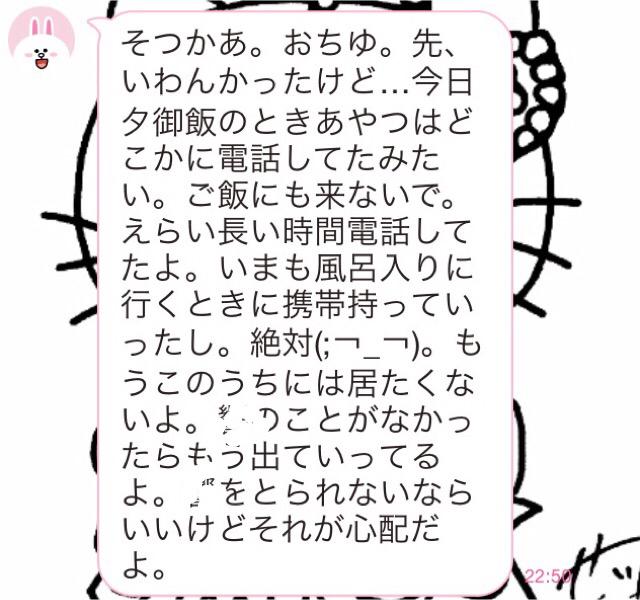 そつかあ。おちゆ。先、
いわんかったけど…今日
夕御飯のときあやつはど
こかに電話してたみた
い。ご飯にも来ないで。
えらい長い時間電話して
たよ。いまも風呂入りに
行くときに携帯持ってい
ったし。絶対(;￢_￢)。も
うこのうちには居たくな
いよ。のことがなかっ
たらもう出ていってる
よ。をとられないなら
いいけどそれが心配だ
よ。
22:50